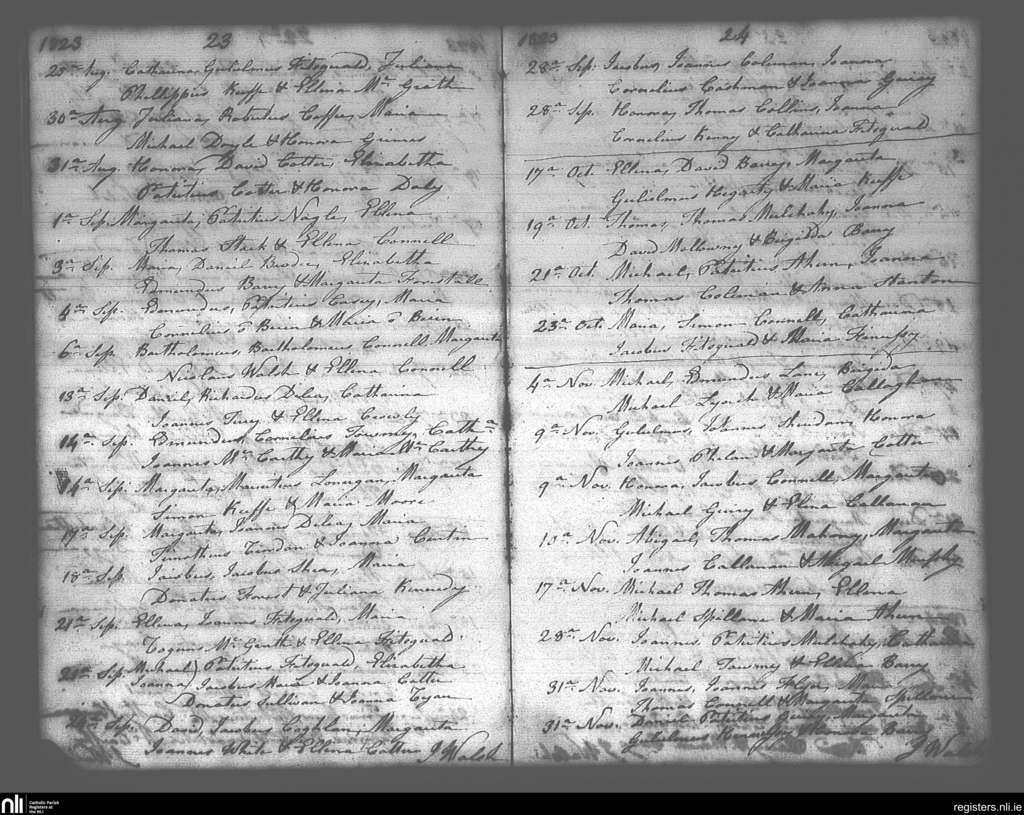 1823 23
25ª Aug. Catharina, Gulielmus Fitzguald, Juliana
Phillippus Keeffe & Ellena Mc Grath
30ª Aug Juliana, Robertus Coffee, Maria
Michael Doyle & Honora
31ª Aug. Honora, David Cotter, Elizabetha
Patritius Cotter & Honora Daly
1ª Sep. Margarita, Patritius Nagle, Ellena
Thomas & Ellena Connell
3ª Sep. Maria, Daniel Elizabetha
Edmundus Barry & Margarita
4ª Sep. Edmundus, Patritius Casey, Maria
Cornelius ō Brien & Maria ō Brien
6ª Sep. Bartholomeus, Bartholomeus Connell, Margarita
Nicolaus Walsh & Ellena Connell
13ª Sep. Daniel, Richardus Delea, Catharina
Joannes & Ellena
14ª Sep. Edmundus, Cornelius Towmey, Cathna
Joannes Mc Carthy & Maria Mc Carthy
Sep. Margarita, Mauritius Lonergan, Margarita
Simon Keeffe & Maria Moore
17ª Sep. Margarita, Joannes Delea, Maria
& Joanna
18ª Sep. Jacobus, Jacobus Shea, Maria
Donatus Forest & Juliana Kennedy
21ª Sep. Ellena, Joannes Fitzguald, Maria
Mc Grath & Ellena Fitzguald
Sep. Michael, Patritius Fitzguald, Elizabetha
Joanna, Jacobus & Joanna Cotter
Donatus Sullivan & Joanna
Sep. David, Jacobus Coghlan, Margarita
Joannes White & Ellena Cotter J Walsh
1823 24
28ª Sep. Jacobus, Joannes Coleman, Joanna
Cornelius Cashman & Joanna Guiry
28ª Sep. Honora, Thomas Collins, Joanna
Cornelius Kenny & Catharina Fitzguald
17ª Oct. Ellena, David Barry, Margarita
Gulielmus Hegarty & Maria Keeffe
19ª Oct. Thomas, Thomas Mulchahy, Joanna
David & Brigida Barry
21ª Oct. Michael, Patritius Ahern, Joanna
Thomas Coleman & Anna Stanton
23ª Oct. Maria, Simon Connell, Catharina
Jacobus Fitzguald & Maria
4ª Nov. Michael, Edmundus Lane, Brigida
Michael & Maria Callaghan
9ª Nov. Gulielmus, Honora
Joannes & Margarita Cotter
9ª Nov. Honora, Jacobus Connell, Margarita
Michael Guiry & Elena Callanan
10ª Nov. Abigail, Thomas Mahony, Margarita
Joannes Callanan & Abigail Murphy
17ª Nov. Michael Thomas Ahern, Ellena
Michael Spillane & Maria Ahern
28ª Nov. Joannes, Patritius Mulchahy, Catharina
Michael Towmey & Ellena Barry
31ª Nov. Joannes, Joannes Maria
Thomas Connell & Margarita Spillane
31ª Nov. Daniel Patritius Guiry, Margarita
Gulielmus & Honora Barry
J Walsh
nli
Catholic Parish
Registers at
the NLI
registers.nli.ie